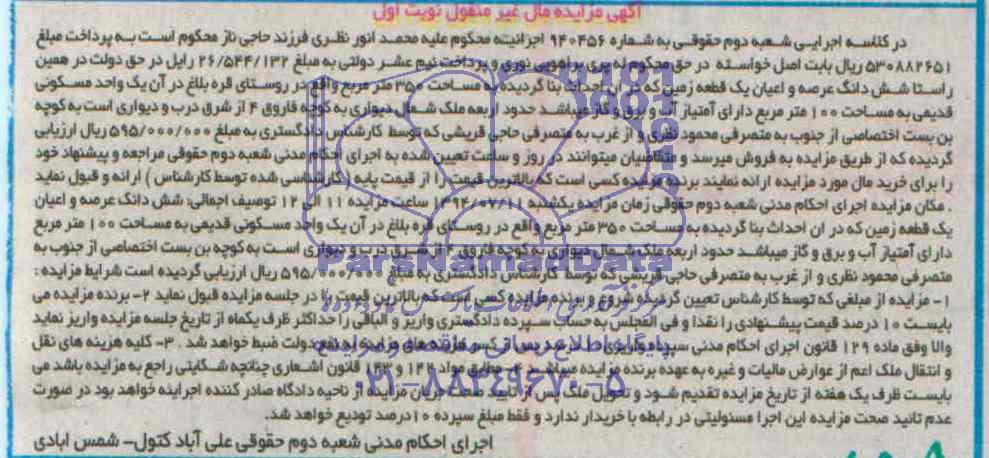 آگهی مزایده مال غیر منقول نوبت اول
در کلاسه اجرایی شعبه دوم حقوقی به شماره ۹۴۰۴۵۶ اجرائیه محکوم علیه محمد انور نظری فرزند حاجی ناز محکوم است به پرداخت مبلغ
۵۳۰۸۸۲۶۵۱ ریال بابت اصل خواسته در حق محکوم له پری براهویی نوری و پرداخت نیم عشر دولتی به مبلغ ۲۶/۵۴۴/۱۳۲ رایل در حق دولت در همین
راستا شش دانگ عرصه و اعیان یک قطعه زمین که در ان احداث بنا گردیده به مساحت ۳۵۰ متر مربع واقع در روستای قره بلاغ در آن یک واحد مسکونی
قدیمی به مساحت ۱۰۰ متر مربع دارای آمتیاز آب و برق و گاز میباشد حدود اربعه ملک شمال دیواری به کوچه فاروق ۴ از شرق درب و دیواری است به کوچه
بن بست اختصاصی از جنوب به متصرفی محمود نظری و از غرب به متصرفی حاجی قریشی که توسط کارشناس دادگستری به مبلغ ۵۹۵/۰۰۰/۰۰۰ ریال ارزیابی
گردیده که از طریق مزایده به فروش میرسد و متقاضیان میتوانند در روز و ساعت تعیین شده به اجرای احکام مدنی شعبه دوم حقوقی مراجعه و پیشنهاد خود
را برای خرید مال مورد مزایده ارائه نمایند برنده مزایده کسی است که بالاترین قیمت را از قیمت پایه ( کارشناسی شده توسط کارشناس ) ارائه و قبول نماید
. مکان مزایده اجرای احکام مدنی شعبه دوم حقوقی زمان مزایده یکشنبه ۱۳۹۴/۰۷/۱۱ ساعت مزایده ۱۱ الی ۱۲ توصیف اجمالی: شش دانگ عرصه و اعیان
یک قطعه زمین که در ان احداث بنا گردیده به مساحت ۳۵۰ متر مربع واقع در روستای قره بلاغ در آن یک واحد مسکونی قدیمی به مساحت ۱۰۰ متر مربع
دارای آمتیاز آب و برق و گاز میباشد حدود اربعه ملک شمال دیواری به کوچه فاروق ۴ از شرق درب و دیواری است به کوچه بن بست اختصاصی از جنوب به
متصرفی محمود نظری و از غرب به متصرفی حاجی قریشی که توسط کارشناس دادگستری به مبلغ ۵۹۵/۰۰۰/۰۰۰ ریال ارزیابی گردیده است شرایط مزایده :
۱- مزایده از مبلغی که توسط کارشناس تعیین گردیده شروع و برنده مزایده کسی است که بالاترین قیمت را در جلسه مزایده قبول نماید ۲- برنده مزایده می
بایست ۱۰ درصد قیمت پیشنهادی را نقدا و فی المجلس به حساب سپرده دادگستری واریز و الباقی را حداکثر ظرف یکماه از تاریخ جلسه مزایده واریز نماید
والا وفق ماده ۱۲۹ قانون اجرای احکام مدنی سپرده واریزی پس از کسر هزینه های مزایده به نفع دولت ضبط خواهد شد . ۳- کلیه هزینه های نقل
و انتقال ملک اعم از عوارض مالیات و غیره به عهده برنده مزایده میباشد ۴- مطابق مواد ۱۴۲ و ۱۴۳ قانون اشعاری چنانچه شکایتی راجع به مزایده باشد می
بایست ظرف یک هفته از تاریخ مزایده تقدیم شود و تحویل ملک پس از تایید صحت جریان مزایده از ناحیه دادگاه صادر کننده اجرائیه خواهد بود در صورت
عدم تائید صحت مزایده این اجرا مسئولیتی در رابطه با خریدار ندارد و فقط مبلغ سپرده ۱۰درصد تودیع خواهد شد.
اجرای احکام مدنی شعبه دوم حقوقی علی آباد کتول- شمس ابادی
ParsNamadData
پایگاه اطلاع رسانی مناقصه و مزایده
۰۲۱-۸۸۳۴۹۶۷۰-۵